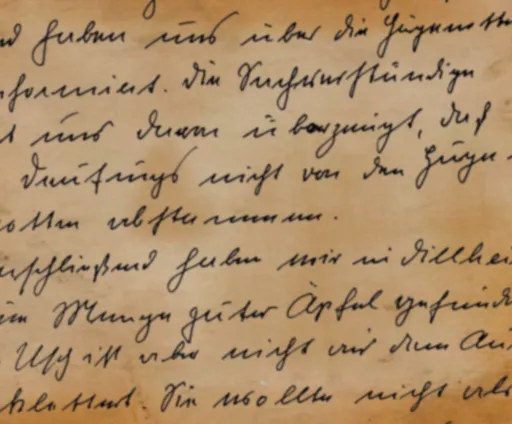 nd haben uns über die Hugenotte
nformiert. Die Sachverständige
t uns davon überzeugt, daß
nicht von den Huge-
notten abstammen.
nschließend haben wir in Dillhei
ine Menge guter Äpfel gefunde
Usch ist aber nicht auf dem Au
klettert. Sie wollte nicht als